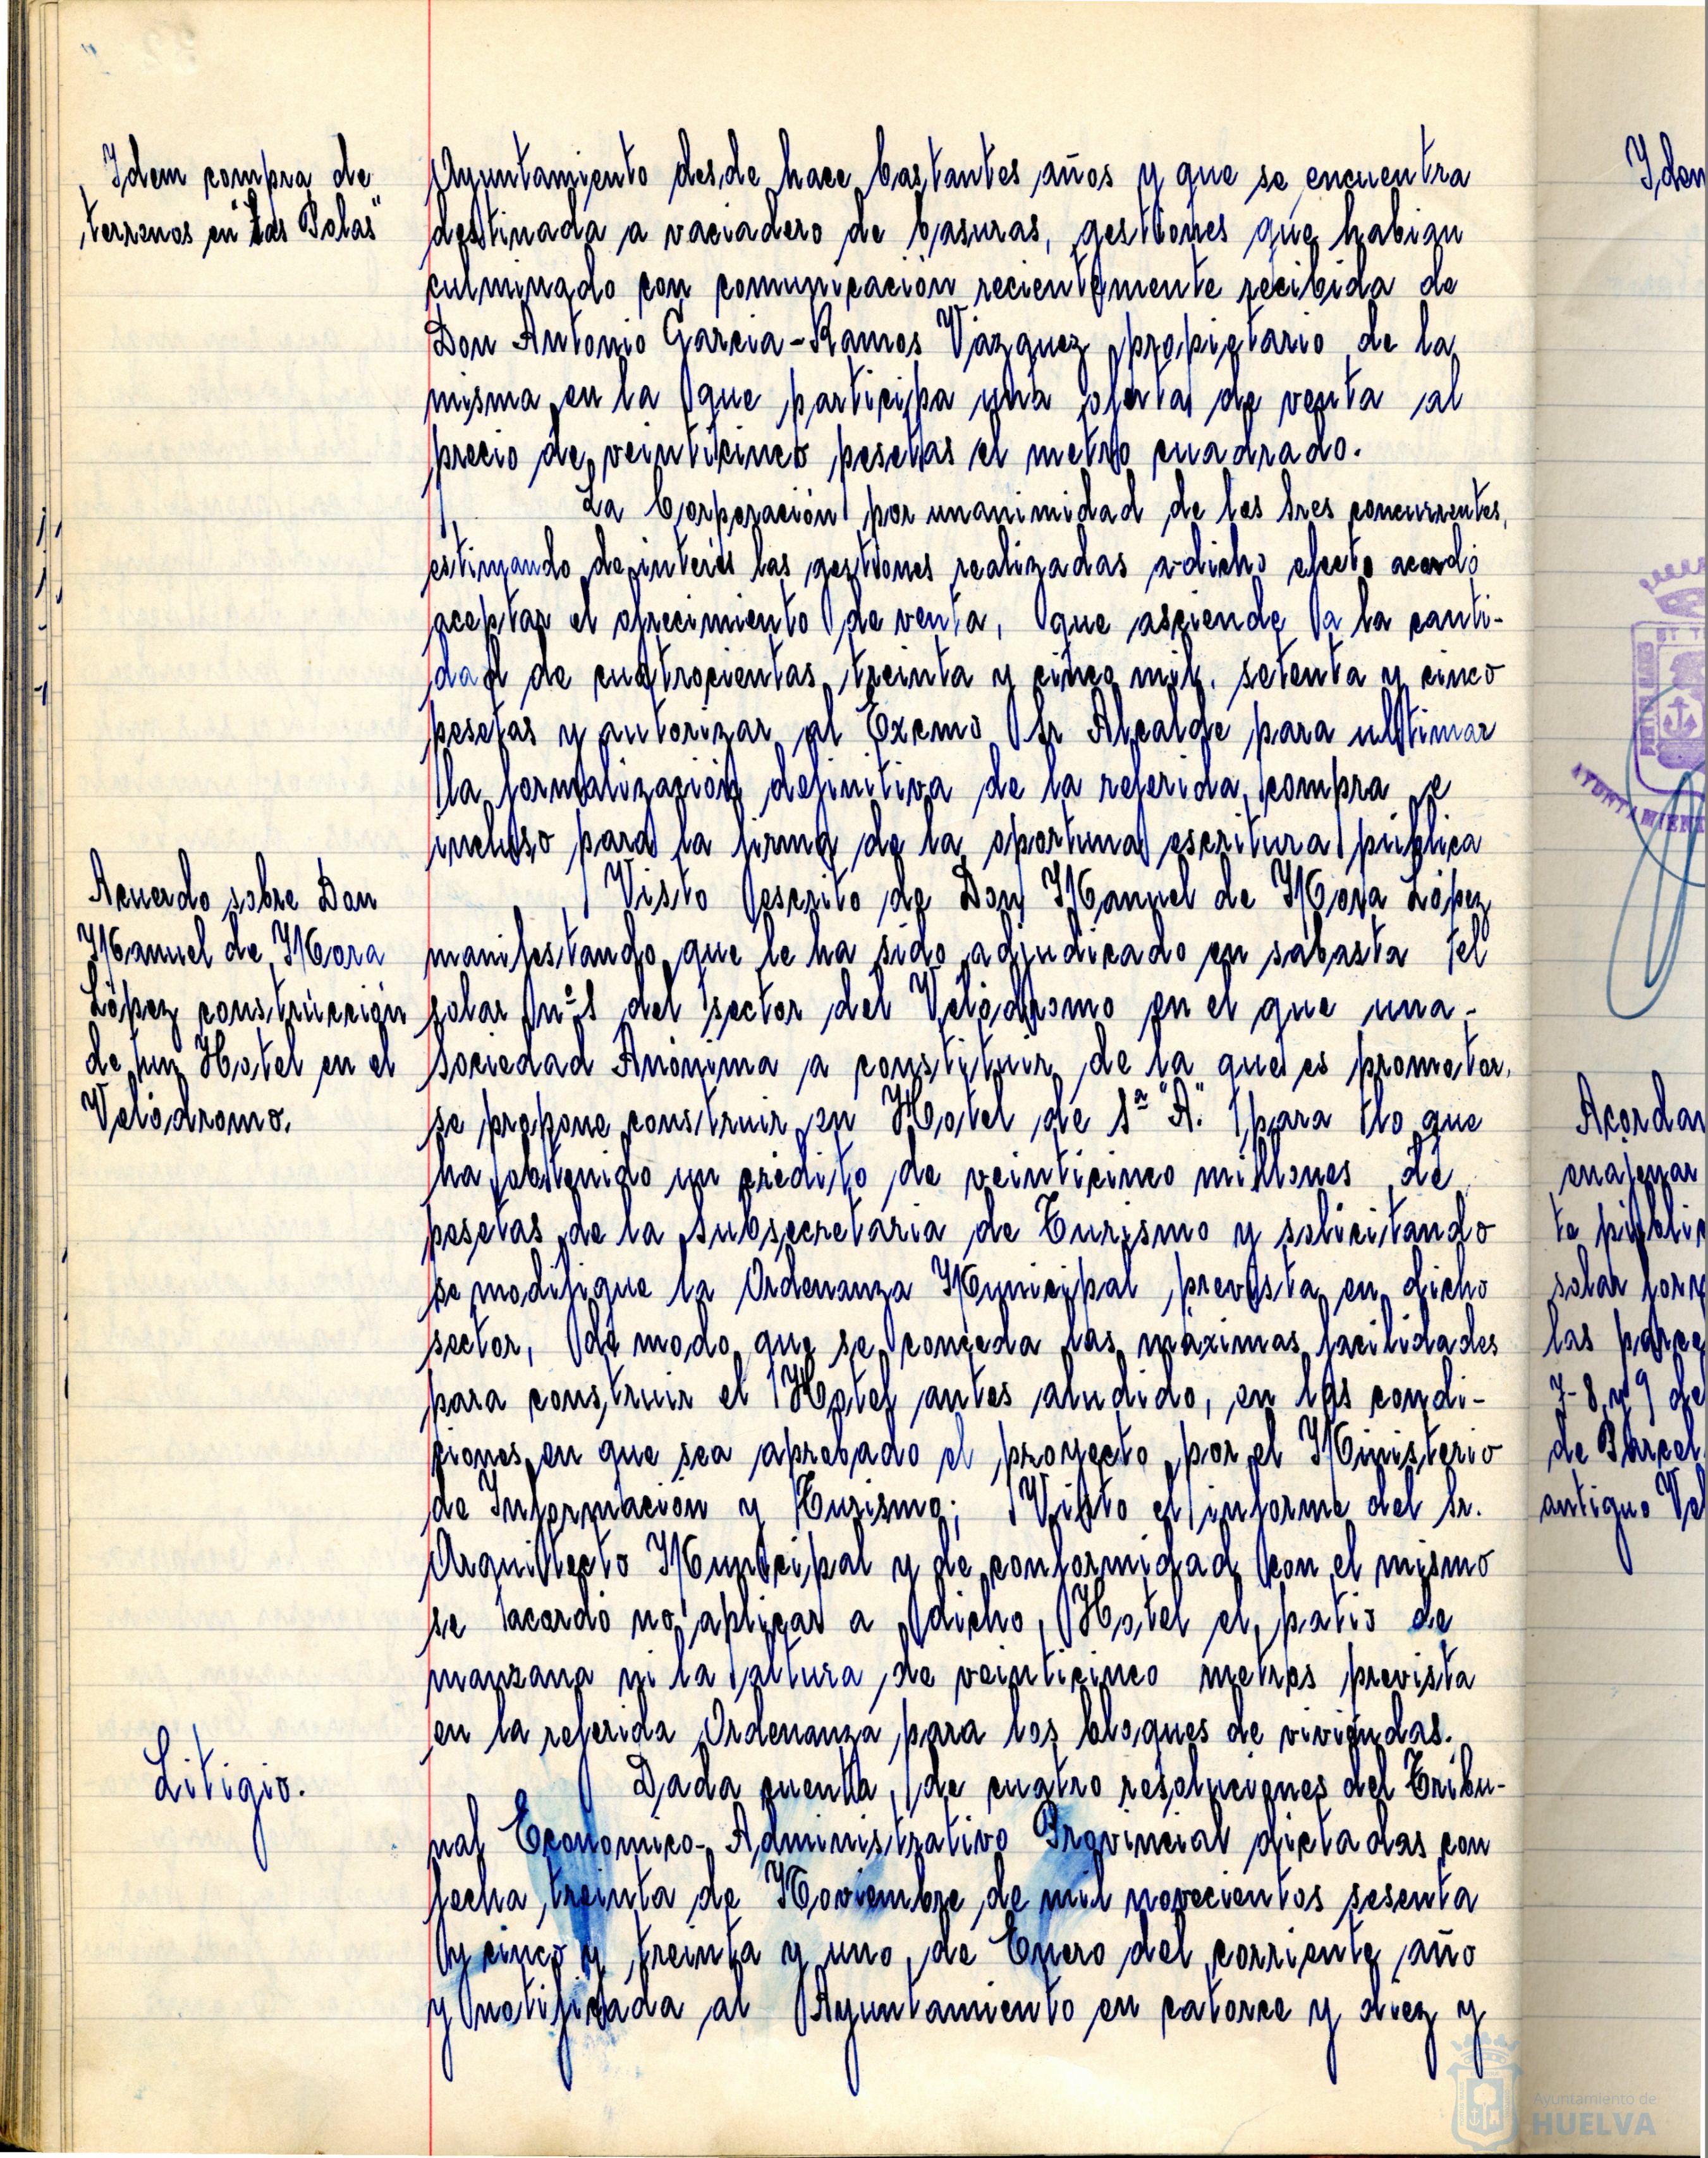 Idem compra de
terrenos en "Las Bolas"
Ayuntamiento desde hace bastantes años y que se encuentra
destinada a vaciadero de basuras, gestiones que habian
culminado con comunicación recientemente recibida de
Don Antonio Garcia-Ramos Vázquez propietario de la
misma en la que participa una oferta de venta al
precio de veinticinco pesetas el metro cuadrado.
La Corporación por unanimidad de los Sres concurrentes,
estimando de interés las gestiones realizadas a dicho efecto acordó
aceptar el ofrecimiento de venta, que asciende a la canti-
dad de cuatrocientas treinta y cinco mil setenta y cinco
pesetas y autorizar al Excmo Sr Alcalde para ultimar
la formalización definitiva de la referida compra e
incluso para la firma de la oportuna escritura pública
Acuerdo sobre Don
Manuel de Mora
López construcción
de un Hotel en el
Velódromo.
Visto escrito de Don Manuel de Mora López
manifestando que le ha sido adjudicado en subasta el
solar nº 1 del sector del Velódromo en el que una
Sociedad Anónima a constituir, de la que es promotor,
se propone construir un Hotel de 1ª "A" para lo que
ha obtenido un crédito de veinticinco millones de
pesetas de la Subsecretaria de Turismo y solicitando
se modifique la Ordenanza Municipal prevista en dicho
sector, de modo que se conceda las máximas facilidades
para construir el Hotel antes aludido, en las condi-
ciones en que sea aprobado el proyecto por el Ministerio
de Información y Turismo; Visto el informe del Sr.
Arquitecto Municipal y de conformidad con el mismo
se acordó no aplicar a dicho Hotel el patio de
manzana ni la altura de veinticinco metros prevista
en la referida Ordenanza para los bloques de viviendas.
Litigio.
Dada cuenta de cuatro resoluciones del Tribu-
nal Económico-Administrativo Provincial dictadas con
fecha treinta de Noviembre de mil novecientos sesenta
y cinco y treinta y uno de Enero del corriente año
y notificada al Ayuntamiento en catorce y diez y
Iden
Acordar
enajenar
te públi
solar form
las parce
7-8 y 9 de
de Parcel
antiguo Vel
AYUNTAMIEN
Ayuntamiento de
HUELVA